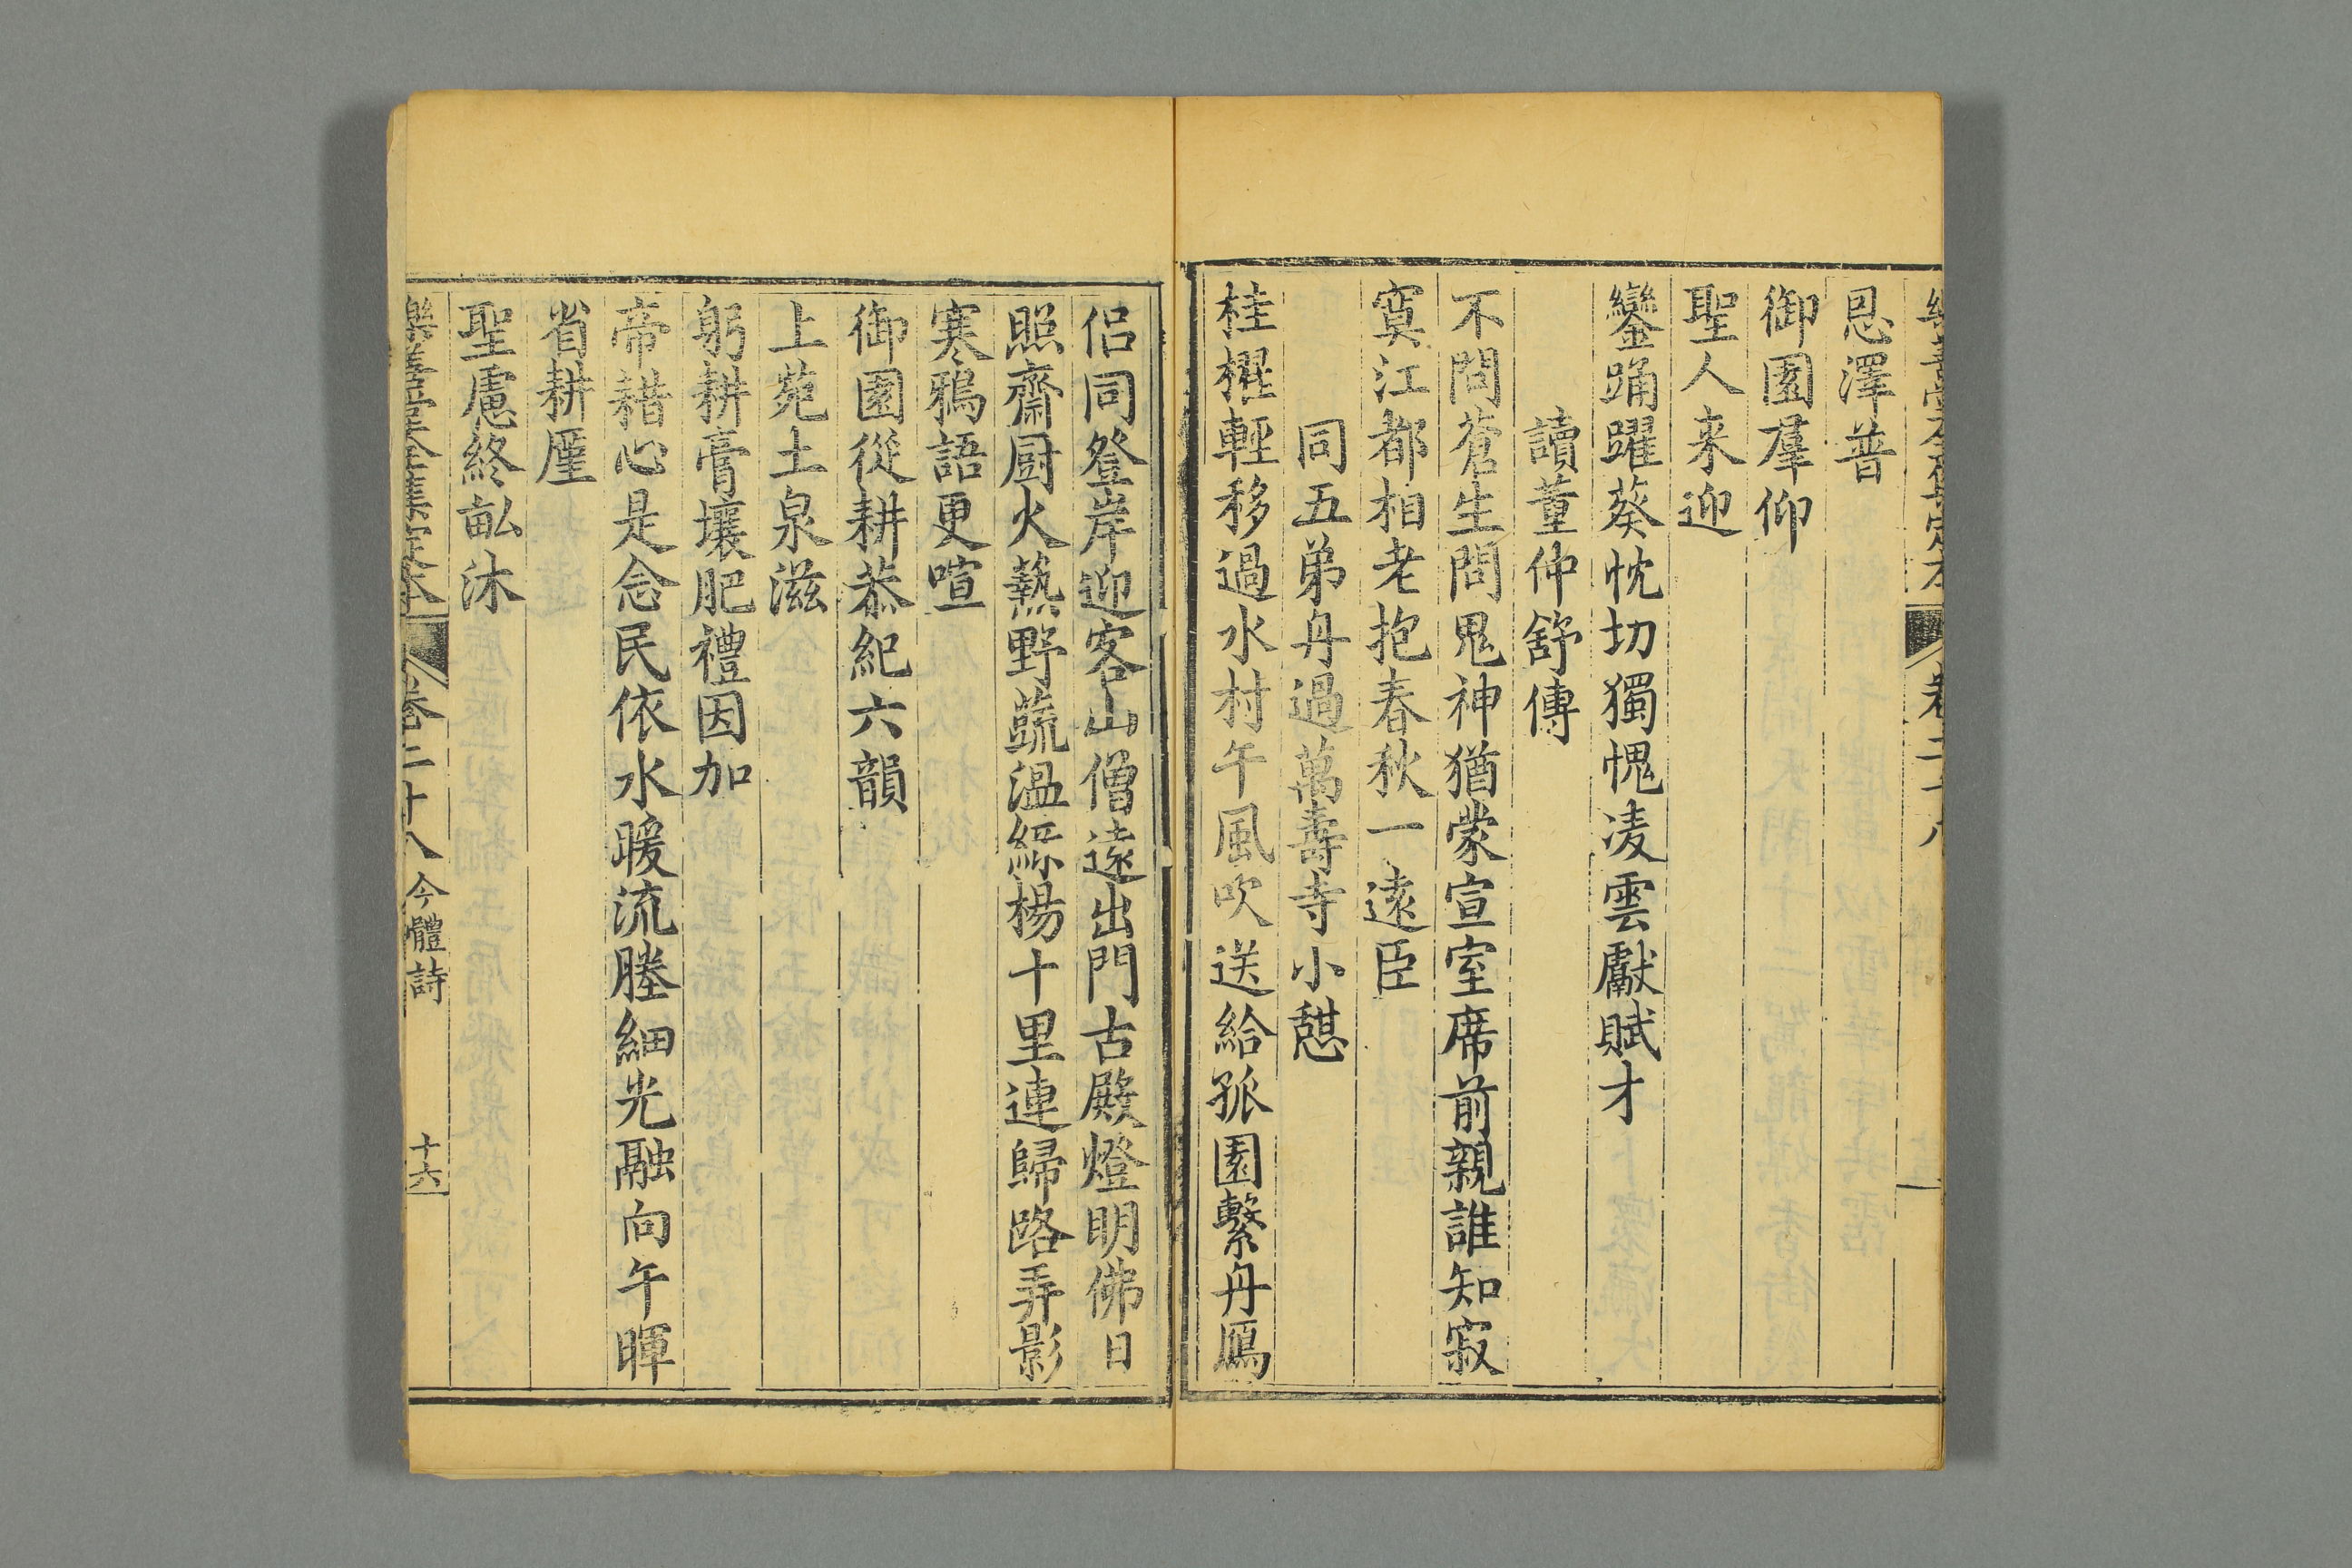 恩澤普
御園羣仰
聖人来迎
鑾踊躍葵忱切獨愧凌雲獻賦才
讀董仲舒傳
不問蒼生問鬼神猶蒙宣室席前親誰知寂
寞江都相老抱春秋一遠臣
同五弟舟過萬壽寺小憇
桂櫂輕移過水村午風吹送給孤園繫舟鴈
侣同登岸迎客山僧遠出門古殿燈明佛日
照齋厨火熱野蔬温緑楊十里連歸路弄影
寒鴉語更喧
御園從耕恭紀六韻
上苑土泉滋
躬耕膏壤肥禮因加
帝耤心是念民依水暖流塍細光融向午暉
省耕厪
聖慮終畝沐
樂善堂全集定本 卷二十八 今體詩 十六